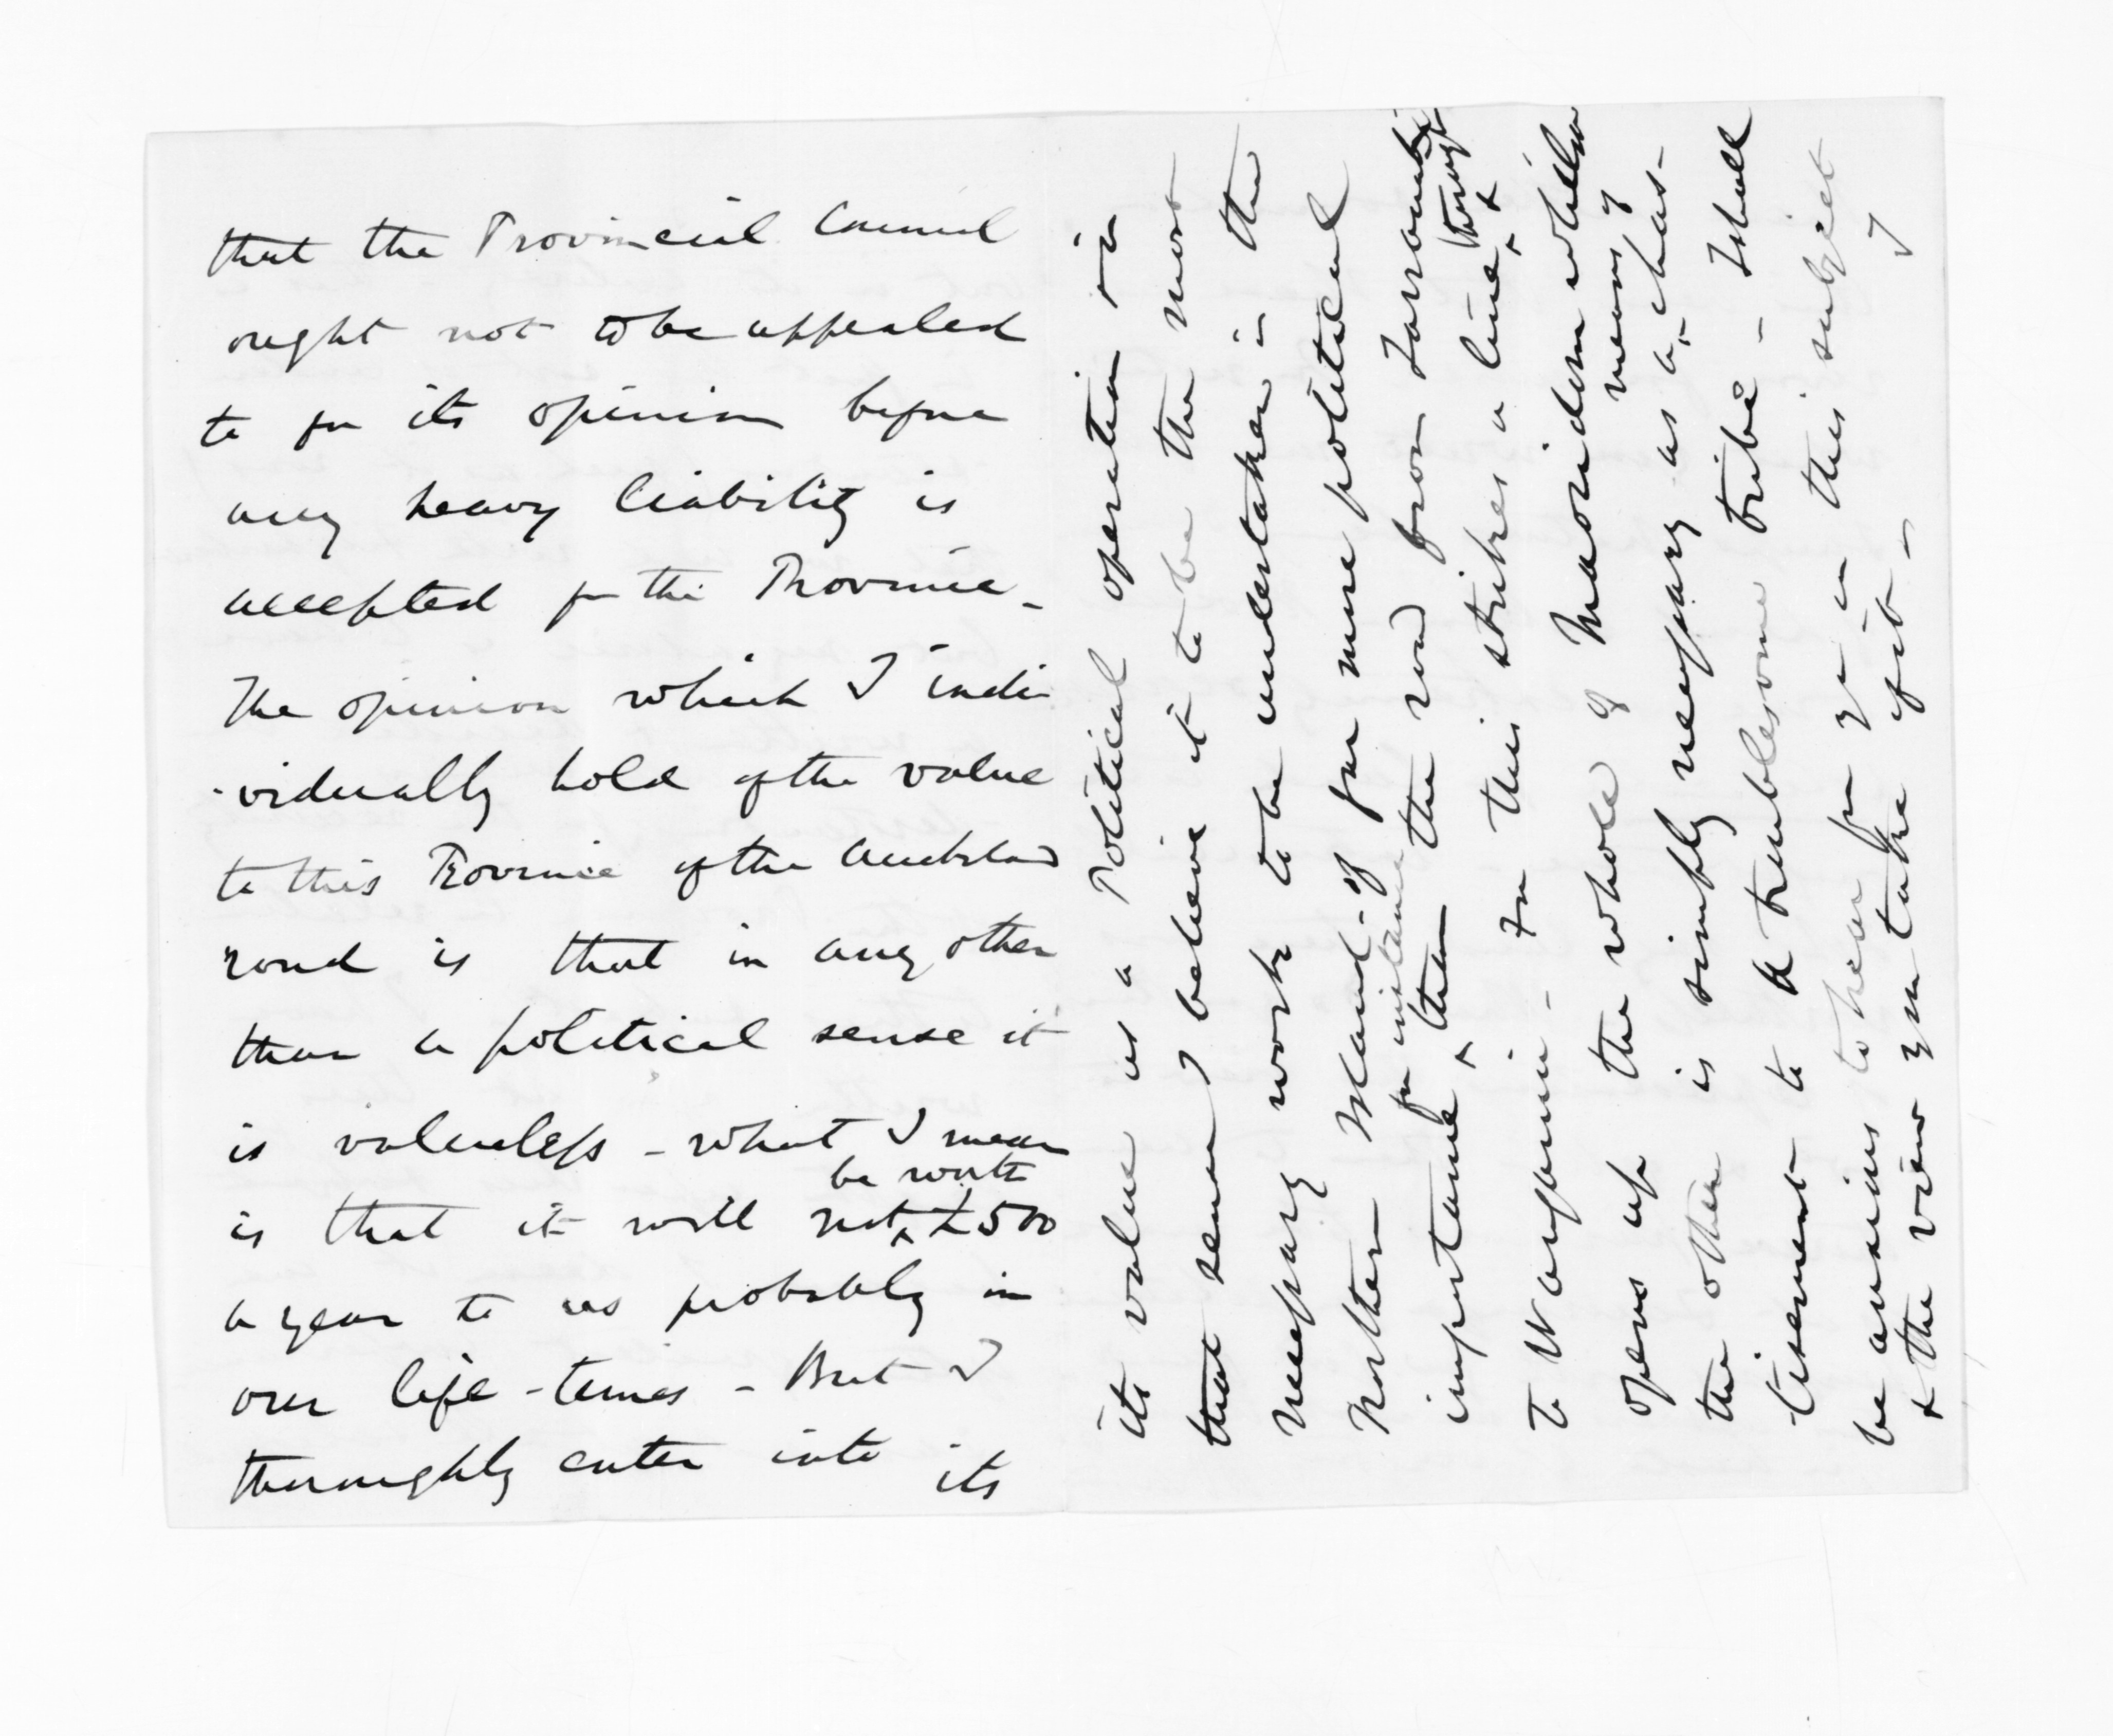 that the Provincial Council
ought not to be appealed
to for its opinion before
any heavy liability is
accepted for the Province -
The opinion which I indi
-vidually hold of the value
to this Province of the Auckland
road is that in any other
than a political sense it
is valueless - what I mean
be worth
is that it will not ‸ £500
a year to us probably in
our life-times - But I
thoroughly enter into its
its value as a Political operation & in
that sense I believe it to be the most
necessary work to be undertaken in the
Northern Island - of far more political
for instance
importance ‸ than the road from Taranaki
to Wanganui - For this strikes a line ‸ & through
opens up the whole of Maoridom while
means of
the other is simply necessary as a ‸ chas-
tisement to a troublesome tribe - I shall
be anxious to hear from you in this subject
& the view you take of it - I